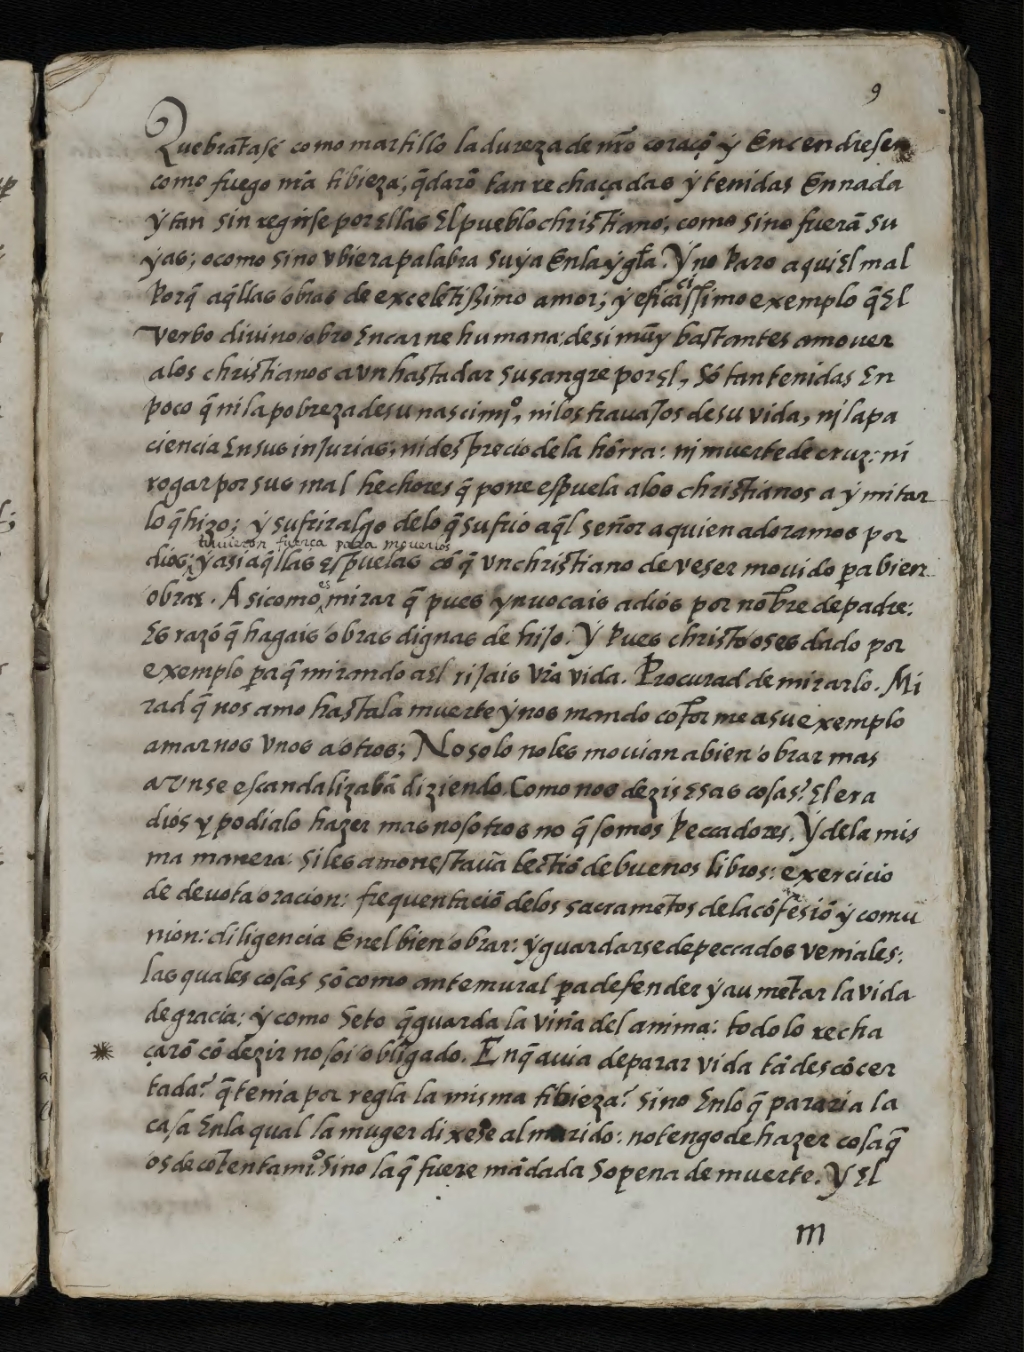 9
Quebrãtasé como martillo la dureza de nr̃o coraçõ ẏ Encendiesen
como fuego nr̃a tibieza; q̃darõ tan rechaçadas ẏ tenidas En nada
ẏ tan sin regirse por ellas El pueblo christiano; como sino fuerã su
yas; o como sino vbiera palabra suẏa En la ẏgl̃a. Ẏ no paro aqui El mal
porq̃ aq̃llas obras de excelẽtißimo amor; ẏ eficacißimo exemplo q̃ El
verbo diuino obro En carne humana; de si muẏ bastantes a mouer
a los christianos a vn hasta dar su sangre por El, Sõ tan tenidas En
poco q̃ ni la pobreza de su nascimjº, ni los trauajos de su vida, nj la pa
ciencia En sus injurias; ni desprecio de la hõrra: nj muerte de cruz: ni
rogar por sus mal hechores q̃ pone espuela a los christianos a ẏmitar
lo q̃ hizo; ẏ sufrir algo de lo q̃ sufrio aq̃l señor a quien adoramos por
tuuieron fuerça para mouerlos
dios; ẏ asi aq̃llas espuelas cõ q̃ vn christiano deue ser mouido p̱a bien
obrar. Asi como es mirar q̃ pues ynuocais a dios por nõbre de padre:
Es razõ q̃ hagais obras dignas de hijo. Ẏ pues christo os es dado por
exemplo p̱a q̃ mirando a El rijais vr̃a vida. Procurad de mirarlo. Mi
rad q̃ nos amo hasta la muerte ẏ nos mando cõforme a su exemplo
amarnos vnos a otros; No solo no les mouian a bien obrar mas
a vn se escandalizabã diziendo. Como nos dezis esas cosas? El era
dios y podialo hazer mas nosotros no q̃ somos peccadores. Ẏ de la mis
ma manera. Si les amonestauã lectiõ de buenos libros: exercicio
de deuota oracion: frequentaciõ de los sacramẽtos de la cõfesiõ ẏ comu
nion: diligencia En el bien obrar: ẏ guardarse de peccados veniales:
las quales cosas sõ como antemural p̱a defender ẏ aumẽtar la vida
de gracia; ẏ como Seto q̃ guarda la viña del anima: todo lo recha
çarõ cõ dezir no soi obligado. En q̃ auia de parar vida tã descõcer
tada? q̃ tenia por regla la misma tibieza? Sino En lo q̃ pararia la
casa En la qual la muger dixese al marido: no tengo de hazer cosa q̃
os de cõtentamiº. Sino la q̃ fuere mãdada So pena de muerte. Y El
m